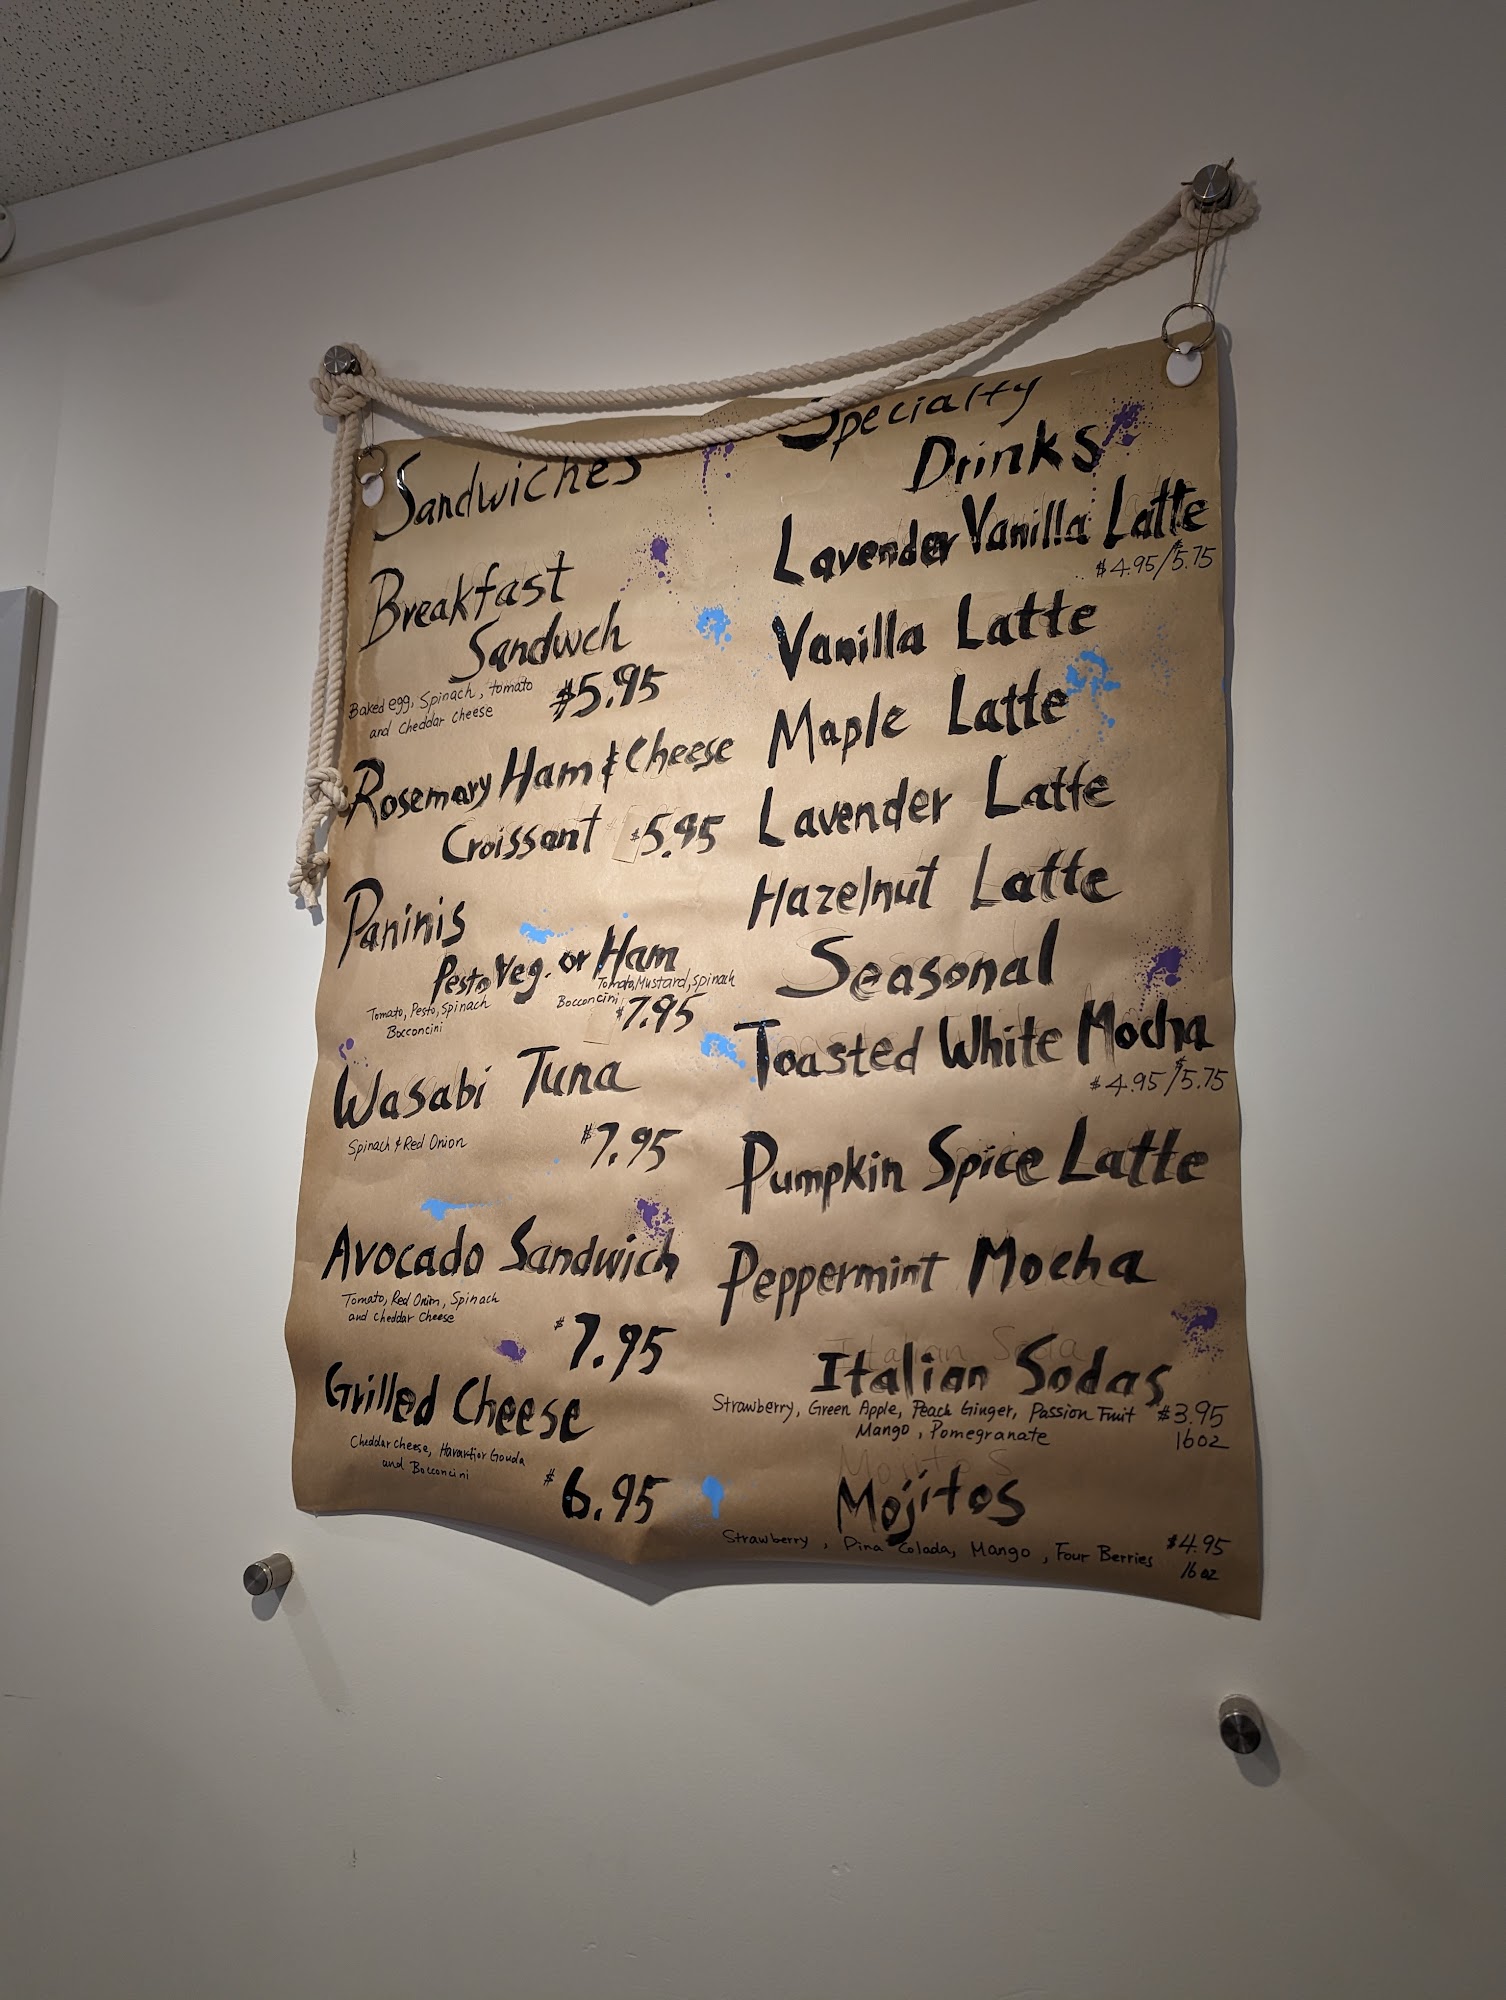 Sandwiches
Breakfast
Sandwch
Baked egg, Spinach, tomato
and cheddar cheese
$5.95
Rosemary Ham & Cheese
Croissant $5.95
Paninis
Pesto Veg. or Ham
Tomato, Pesto, Spinach
Bocconcini
Tomato, Mustard, Spinach
Bocconcini
$7.95
Wasabi Tuna
Spinach & Red Onion
$7.95
Avocado Sandwich
Tomato, Red Onion, Spinach
and Cheddar Cheese
$7.95
Grilled Cheese
Cheddar cheese, Gouda
and Bocconcini
$6.95
Specialty
Drinks
Lavender Vanilla Latte
$4.95/$5.75
Vanilla Latte
Maple Latte
Lavender Latte
Hazelnut Latte
Seasonal
Toasted White Mocha
$4.95/$5.75
Pumpkin Spice Latte
Peppermint Mocha
Italian Soda
Italian Sodas
Strawberry, Green Apple, Peach Ginger, Passion Fruit
Mango, Pomegranate
$3.95
16oz
Mojitos
Mojitos
Strawberry, Pina Colada, Mango, Four Berries
$4.95
16oz